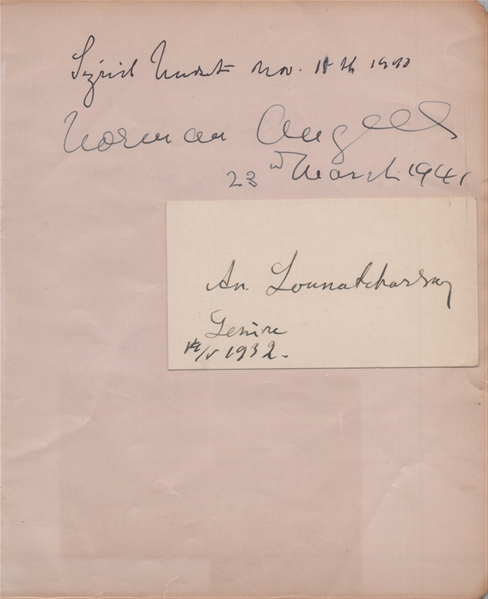 Sigrid Undset Nov. 18th 1940
Norman Angell
23rd March 1941
An. Lounatcharsky
Genève
1932.